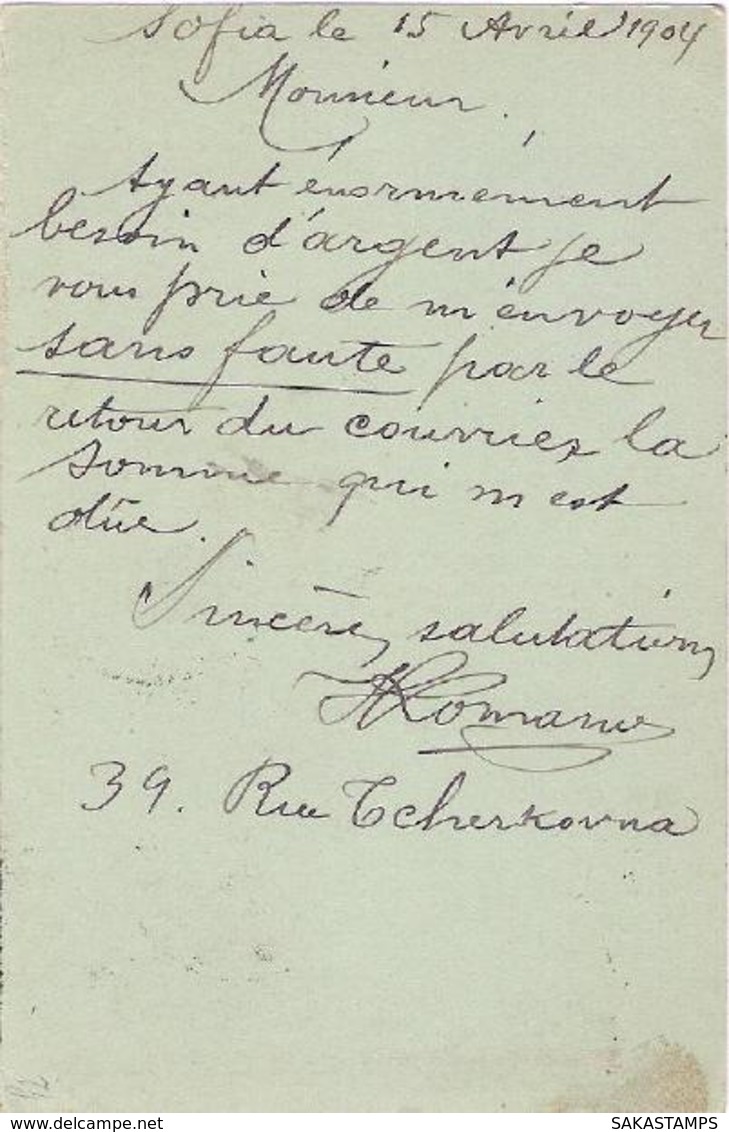 Sofia le 15 Avril 1904
Monsieur,
Ayant énormément
besoin d'argent je
vous prie de m'envoyer
sans faute par le
retour du courrier la
somme qui m'est
dûe.
Sincères salutations
Romano
39. Rue Tcherkovna
www.delcampe.net
SAKASTAMPS